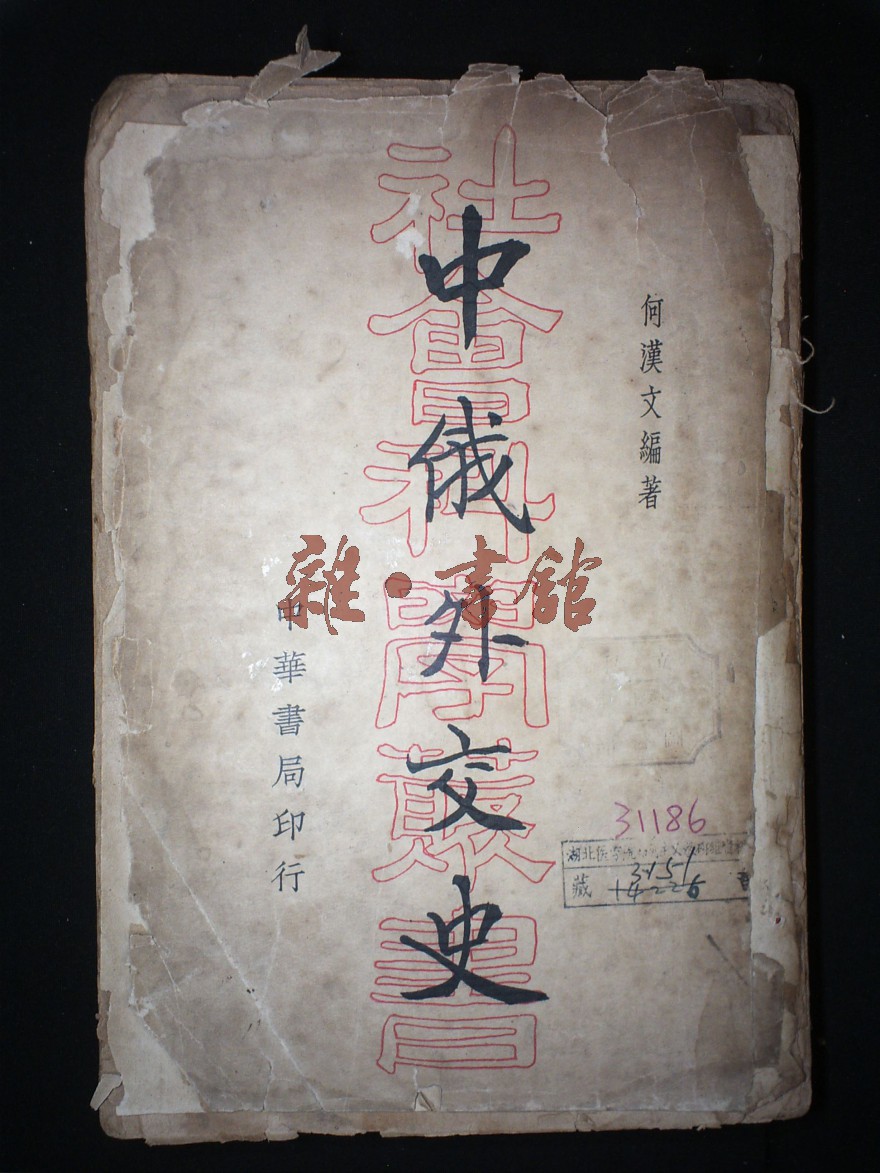 何漢文編著
中俄外交史
社會科學叢書
中華書局印行
雜·書館
31186
湖北
藏
3151
14226